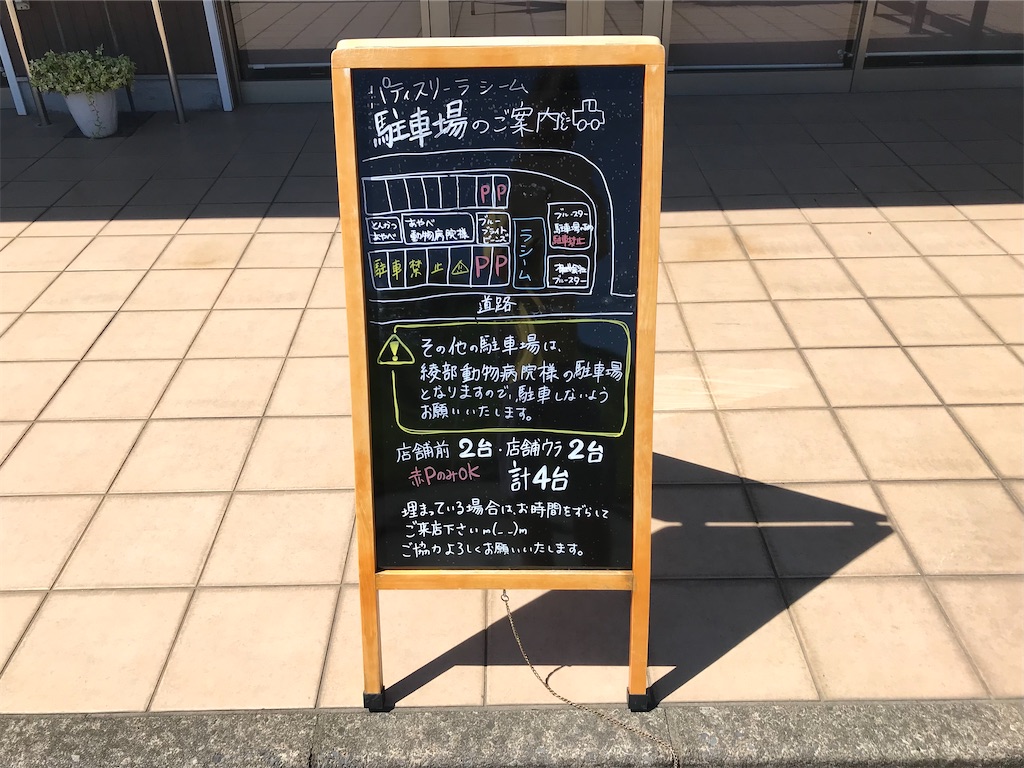 パティスリーラシーム
駐車場のご案内
P P
とんかつ
あやべ
あやべ
動物病院様
ブルー
ブライト
ラシーム
ブルースター
駐車場の為
駐車禁止
駐車禁止
P P
株式会社
ブルースター
道路
その他の駐車場は、
綾部動物病院様の駐車場
となりますので、駐車しないよう
お願いいたします。
店舗前 2台・店舗ウラ 2台
赤PのみOK 計4台
埋まっている場合は、お時間をずらして
ご来店下さいm(_ _)m
ご協力よろしくお願いいたします。